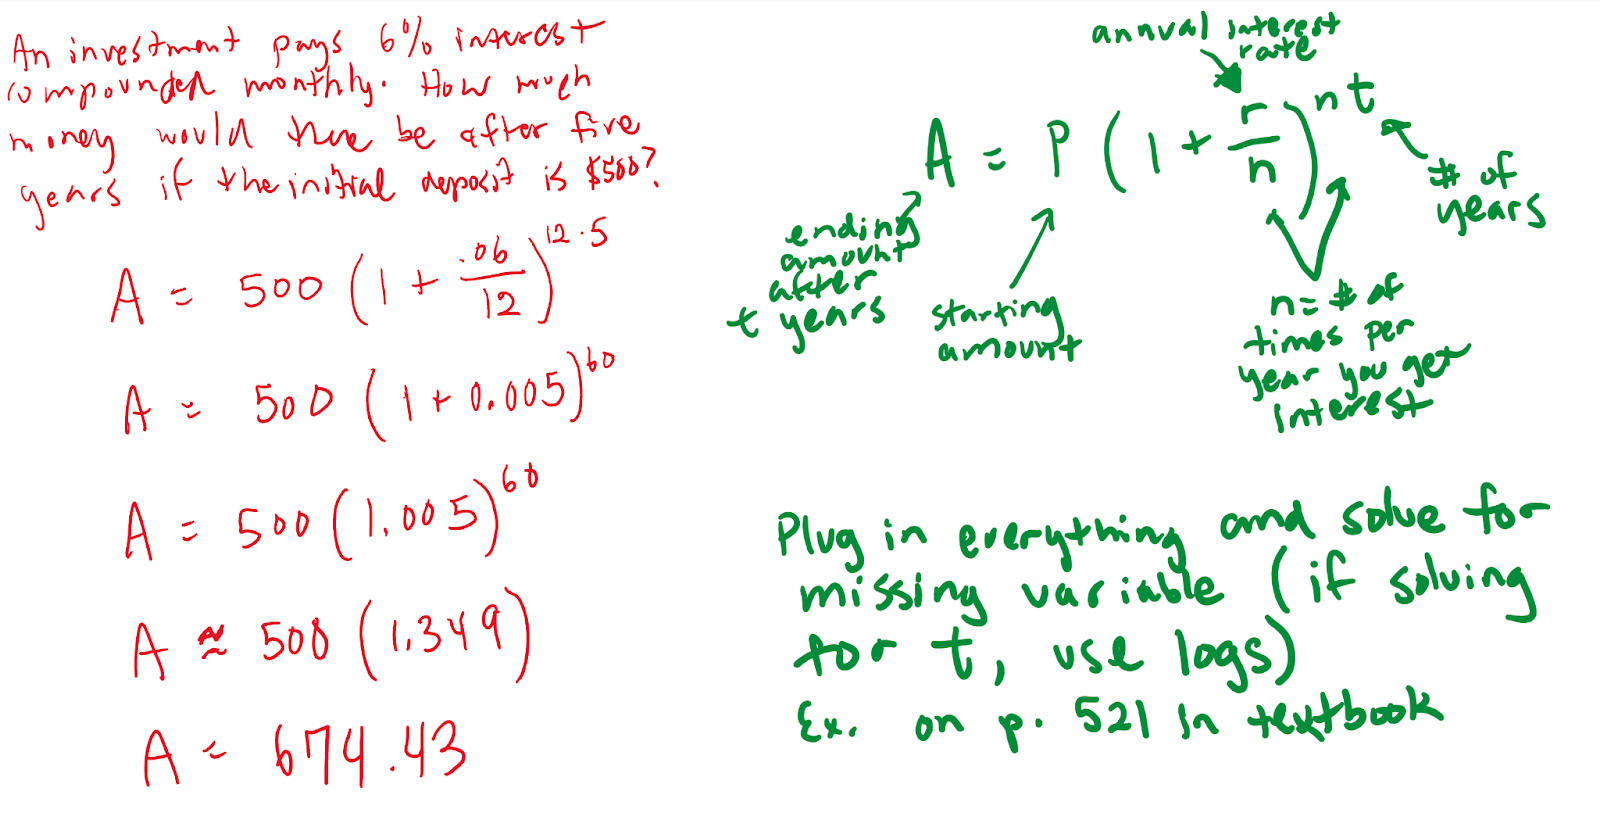 An investment pays 6% interest
compounded monthly. How much
money would there be after five
years if the initial deposit is $500?
A = 500 (1 + .06/12)^12·5
A = 500 (1 + 0.005)^60
A = 500 (1.005)^60
A ≈ 500 (1.349)
A = 674.43
annual interest
rate
A = P (1 + r/n)^nt
# of
years
ending
amount
after
t years
starting
amount
n = # of
times per
year you get
interest
Plug in everything and solve for
missing variable (if solving
for t, use logs)
Ex. on p. 521 in textbook